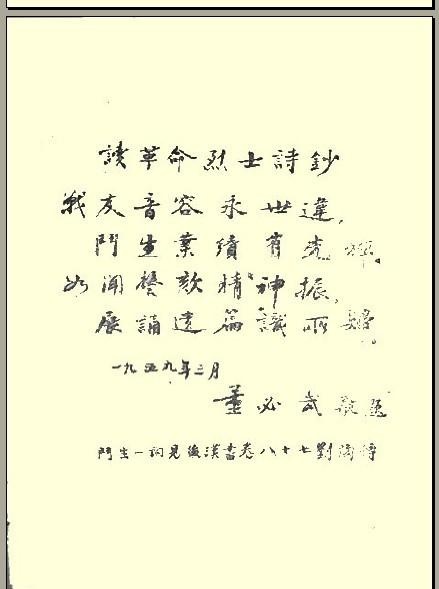 讀革命烈士詩鈔
战友音容永世違,
鬥生業績有光輝。
如聞謦欬精神振,
展誦遺篇識所歸。
一九五九年三月
董必武敬題
鬥生一詞見後漢書卷八十七劉陶傳